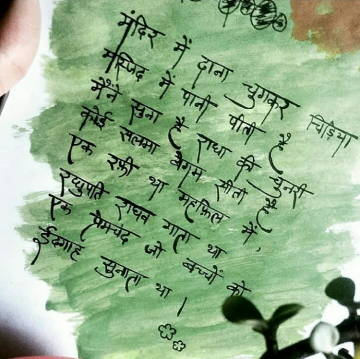 मंदिर में दाना चुगकर चिड़िया
मस्जिद में पानी पीती है
मैंने सुना है राधा की चुनरी
कोई सलमा बेगम सीती है
एक रफ़ी था महफ़िल में,
रघुपति राघव गाता था
एक प्रेमचंद जो बच्चों को
ईदगाह सुनाता था।